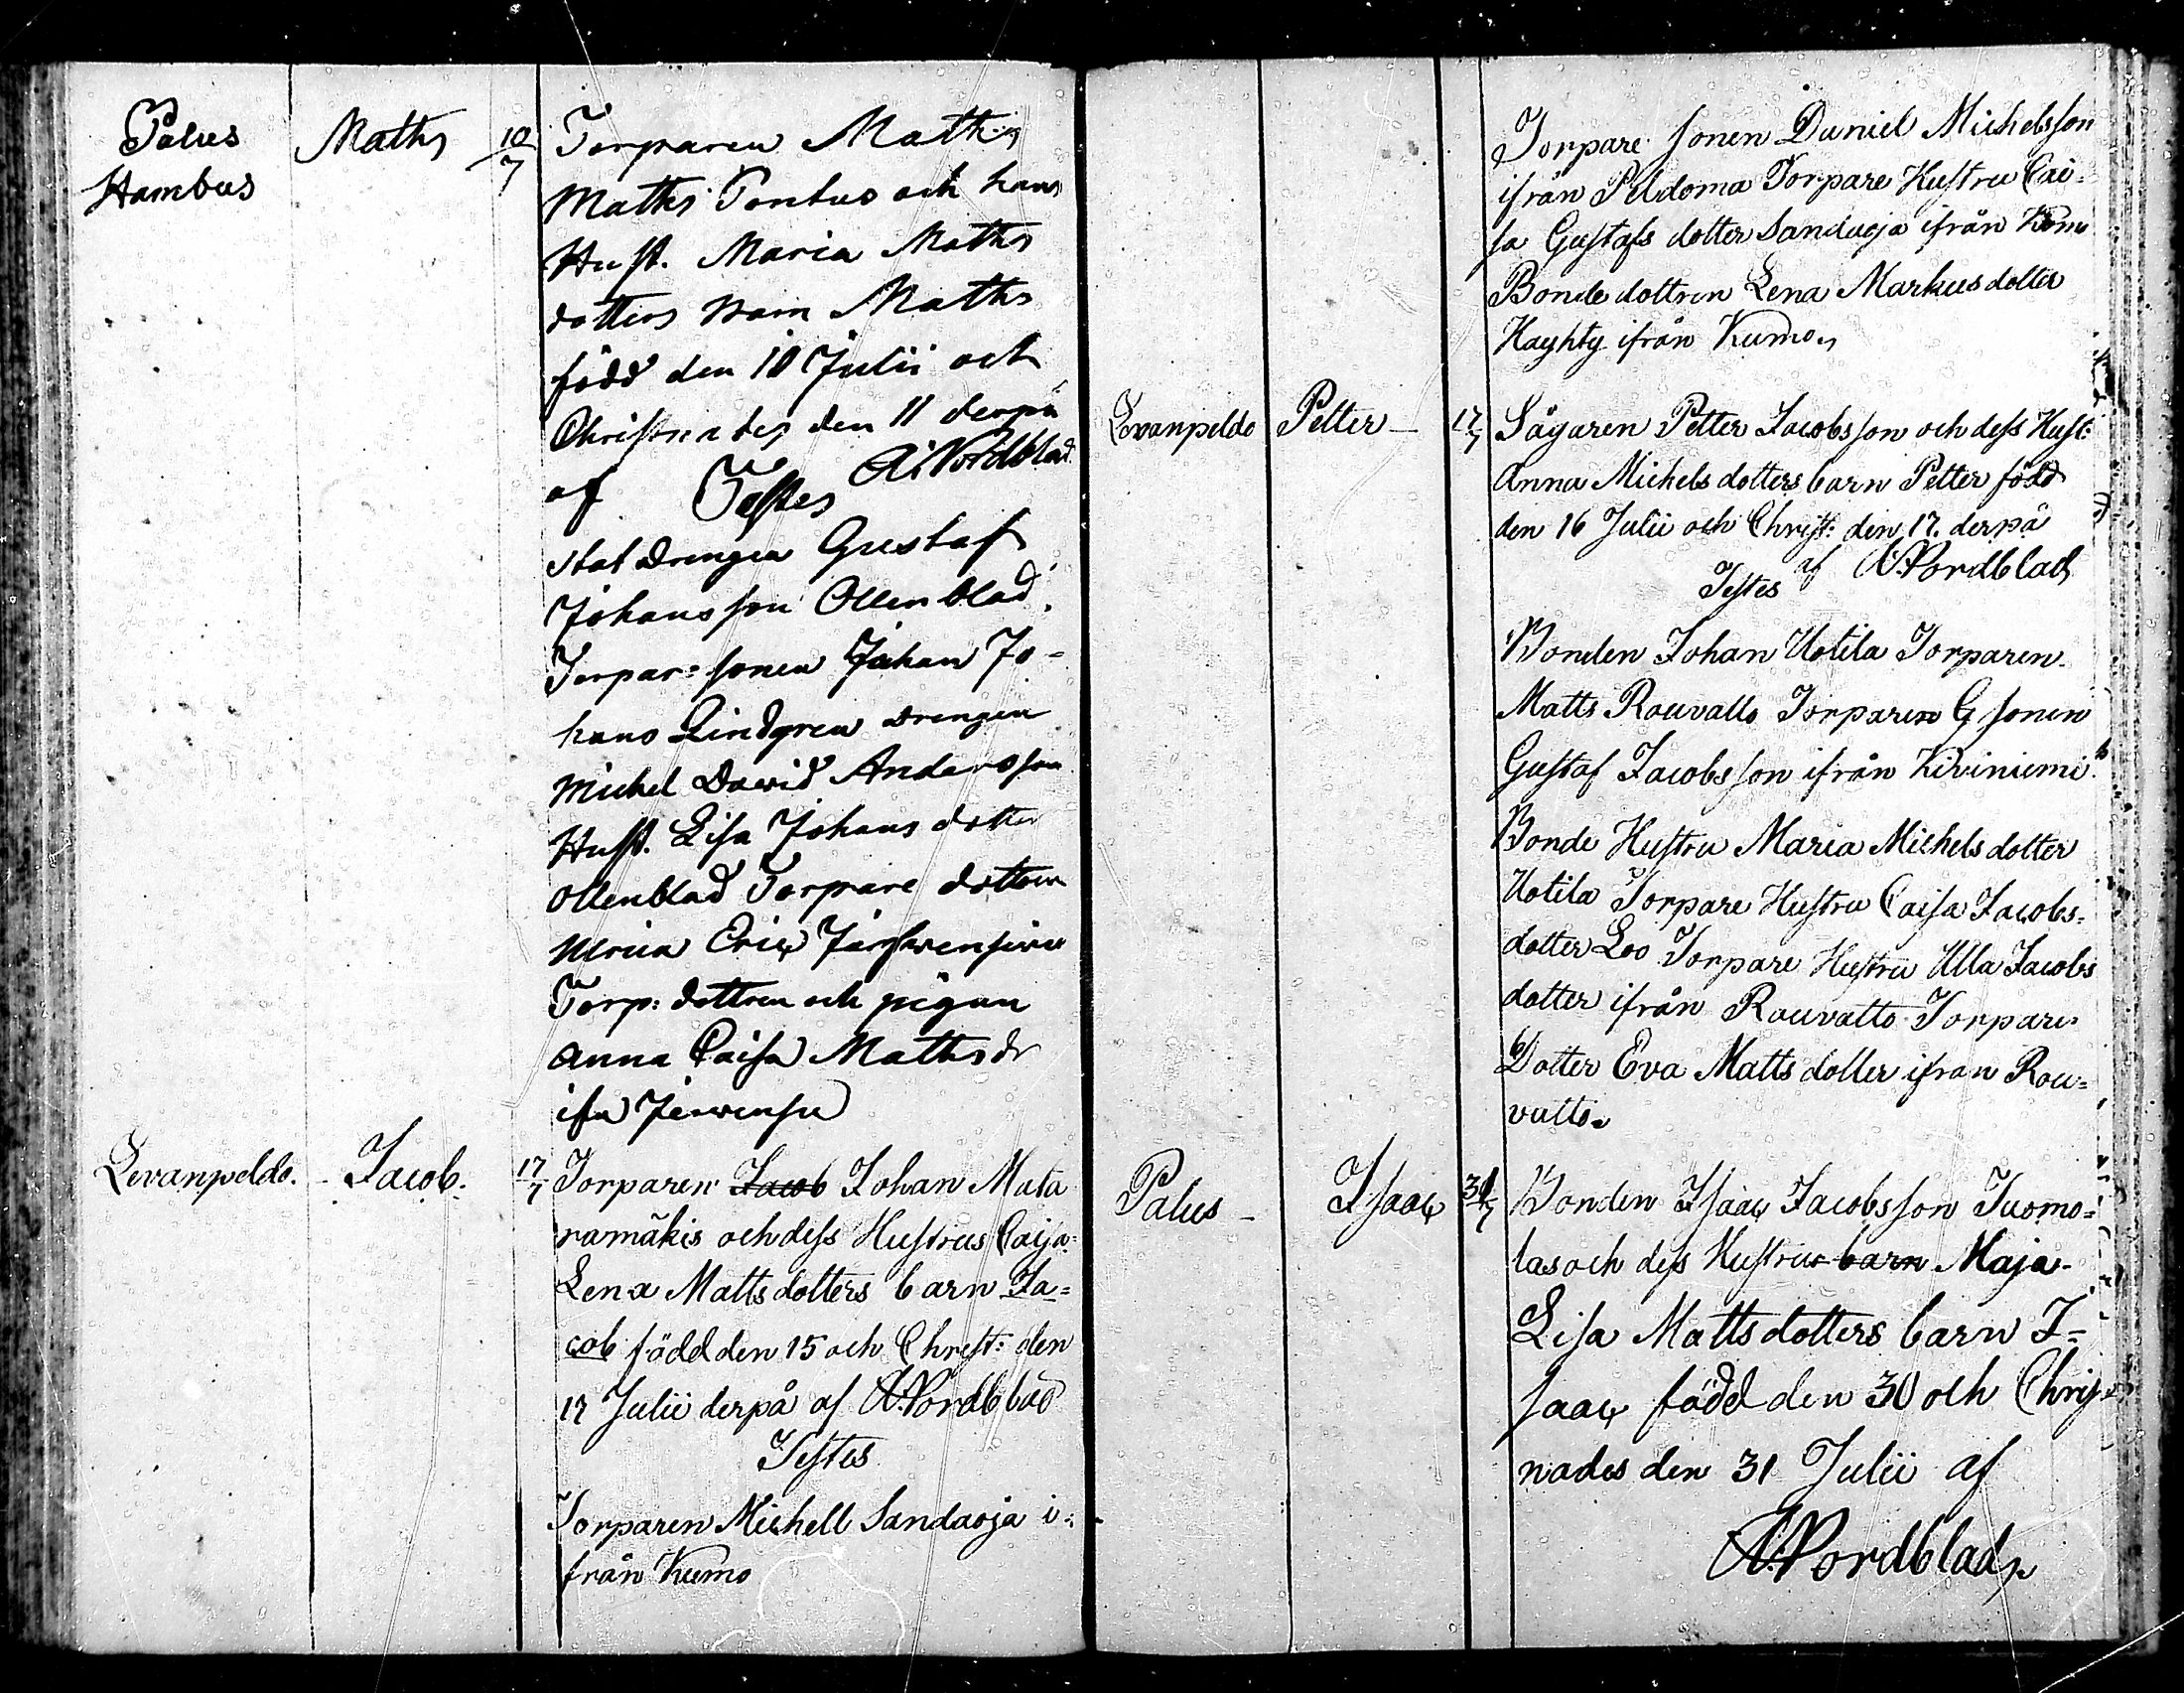 Palus Maths 10/7 Torparen Maths
Hambus
Maths Pontus och hans
Hust. Maria Maths
dotters barn Maths
född den 10 Julii och
Christnades den 11 derpå
af A. Nordblad
Testes
Statdrengen Gustaf
Johansson Ollenblad
Torpar=sonen Johan Jo-
hans Lindgren Drengen
Michel Dawid Andersson
Hust. Lisa Johans dotter
Ollenblad Torpare dottren
Torp: dottren och pigan
Anna Caisa Maths dr
Levanpeldo. Jacob. 17/7 Torparen Jacob Johan Mata
ramäkis och dess Hustrus Caisa
Lena Matts dotters barn Ja=
cob född den 15 och Christ: den
17 Julii derpå af A. Nordblad
Testes
Torparen Michell Sandaoja i=
från Kumo
Torpare sonen Daniel Michelsson
ifrån Peldoma Torpare Hustru Cai=
sa Gustafs dotter Sandaoja ifrån Kumo
Bonde dottren Lena Markus dotter
Hayhty ifrån Kumo
Levanpeldo Petter 17/7 Sågaren Petter Jacobsson och dess Hust:
Anna Michels dotters barn Petter född
den 16 Julii och Christ: den 17. derpå
af A. Nordblad
Testes
Bonden Johan Uotila Torparen
Matts Rouvatto Torparen G sonen
Gustaf Jacobsson ifrån Kiviniemi
Bonde Hustru Maria Michels dotter
Uotila Torpare Hustru Caisa Jacobs=
dotter Loo Torpare Hustru Ulla Jacobs
dotter ifrån Rouvatto Torpare
Dotter Eva Matts dotter ifrån Rou=
vatto
Palus Isaac 31/7 Bonden Isaac Jacobsson Tuomo=
las och dess Hustrus barn Maja
Lisa Matts dotters barn I=
saac född den 30 och Christ
nades den 31 Julii af
A. Nordblad